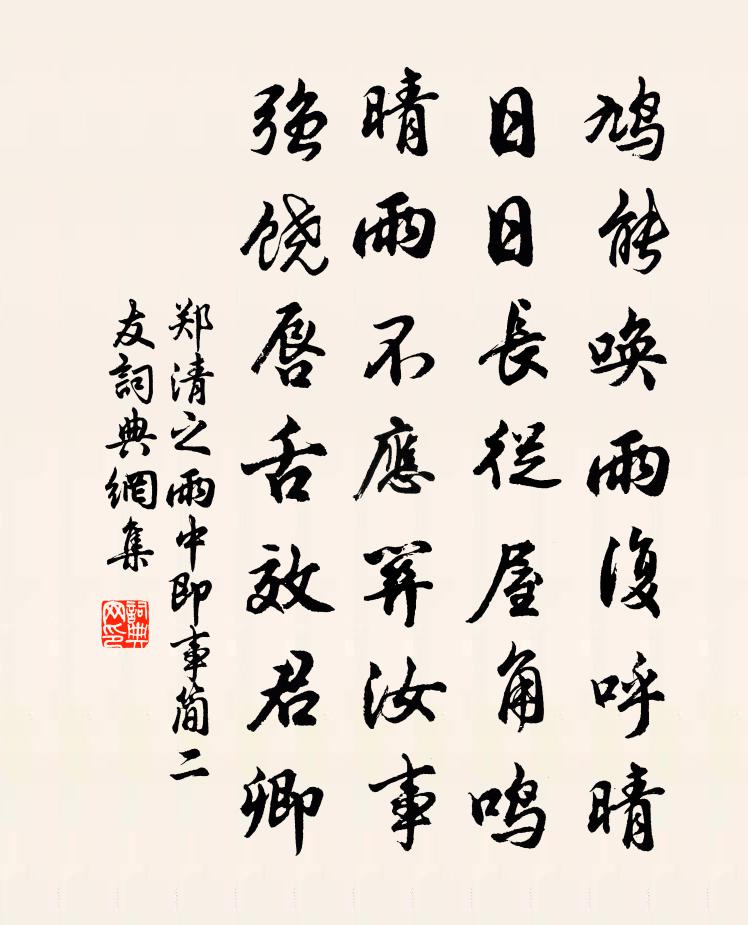 鸠能唤雨復呼晴
日日長從屋角鸣
晴雨不應關汝事
强饶唇舌效君卿
郑清之雨中即事简二
友詞典網集
詞典网印